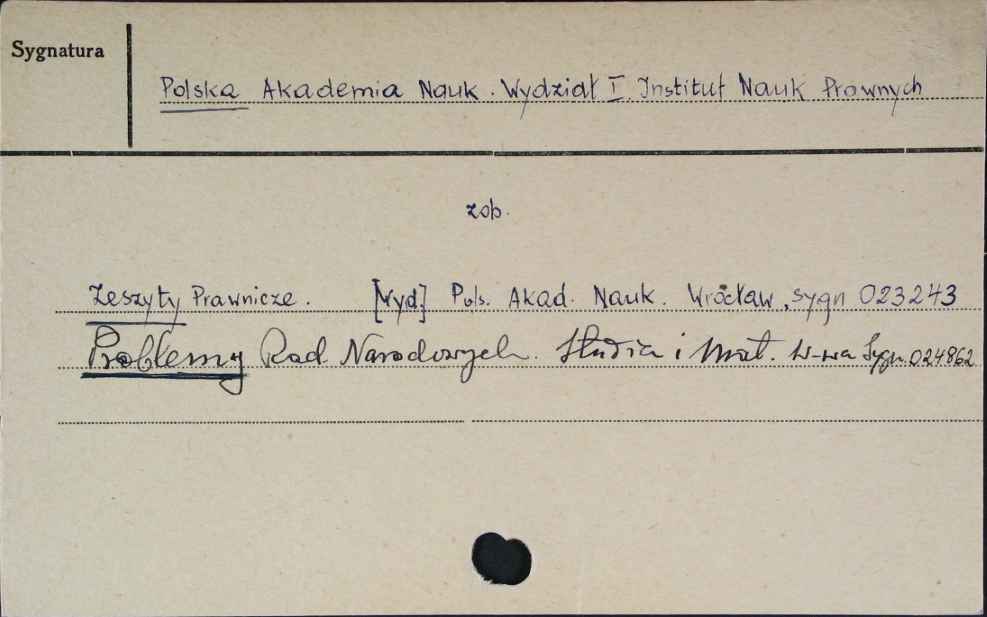 Sygnatura
Polska Akademia Nauk. Wydział I Institut Nauk Prawnych
zob.
Zeszyty Prawnicze. [Wyd.] Pols. Akad. Nauk. Wrocław, sygn 023243
Problemy Rad Narodowych. Studia i Mat. W-wa Sygn. 024862